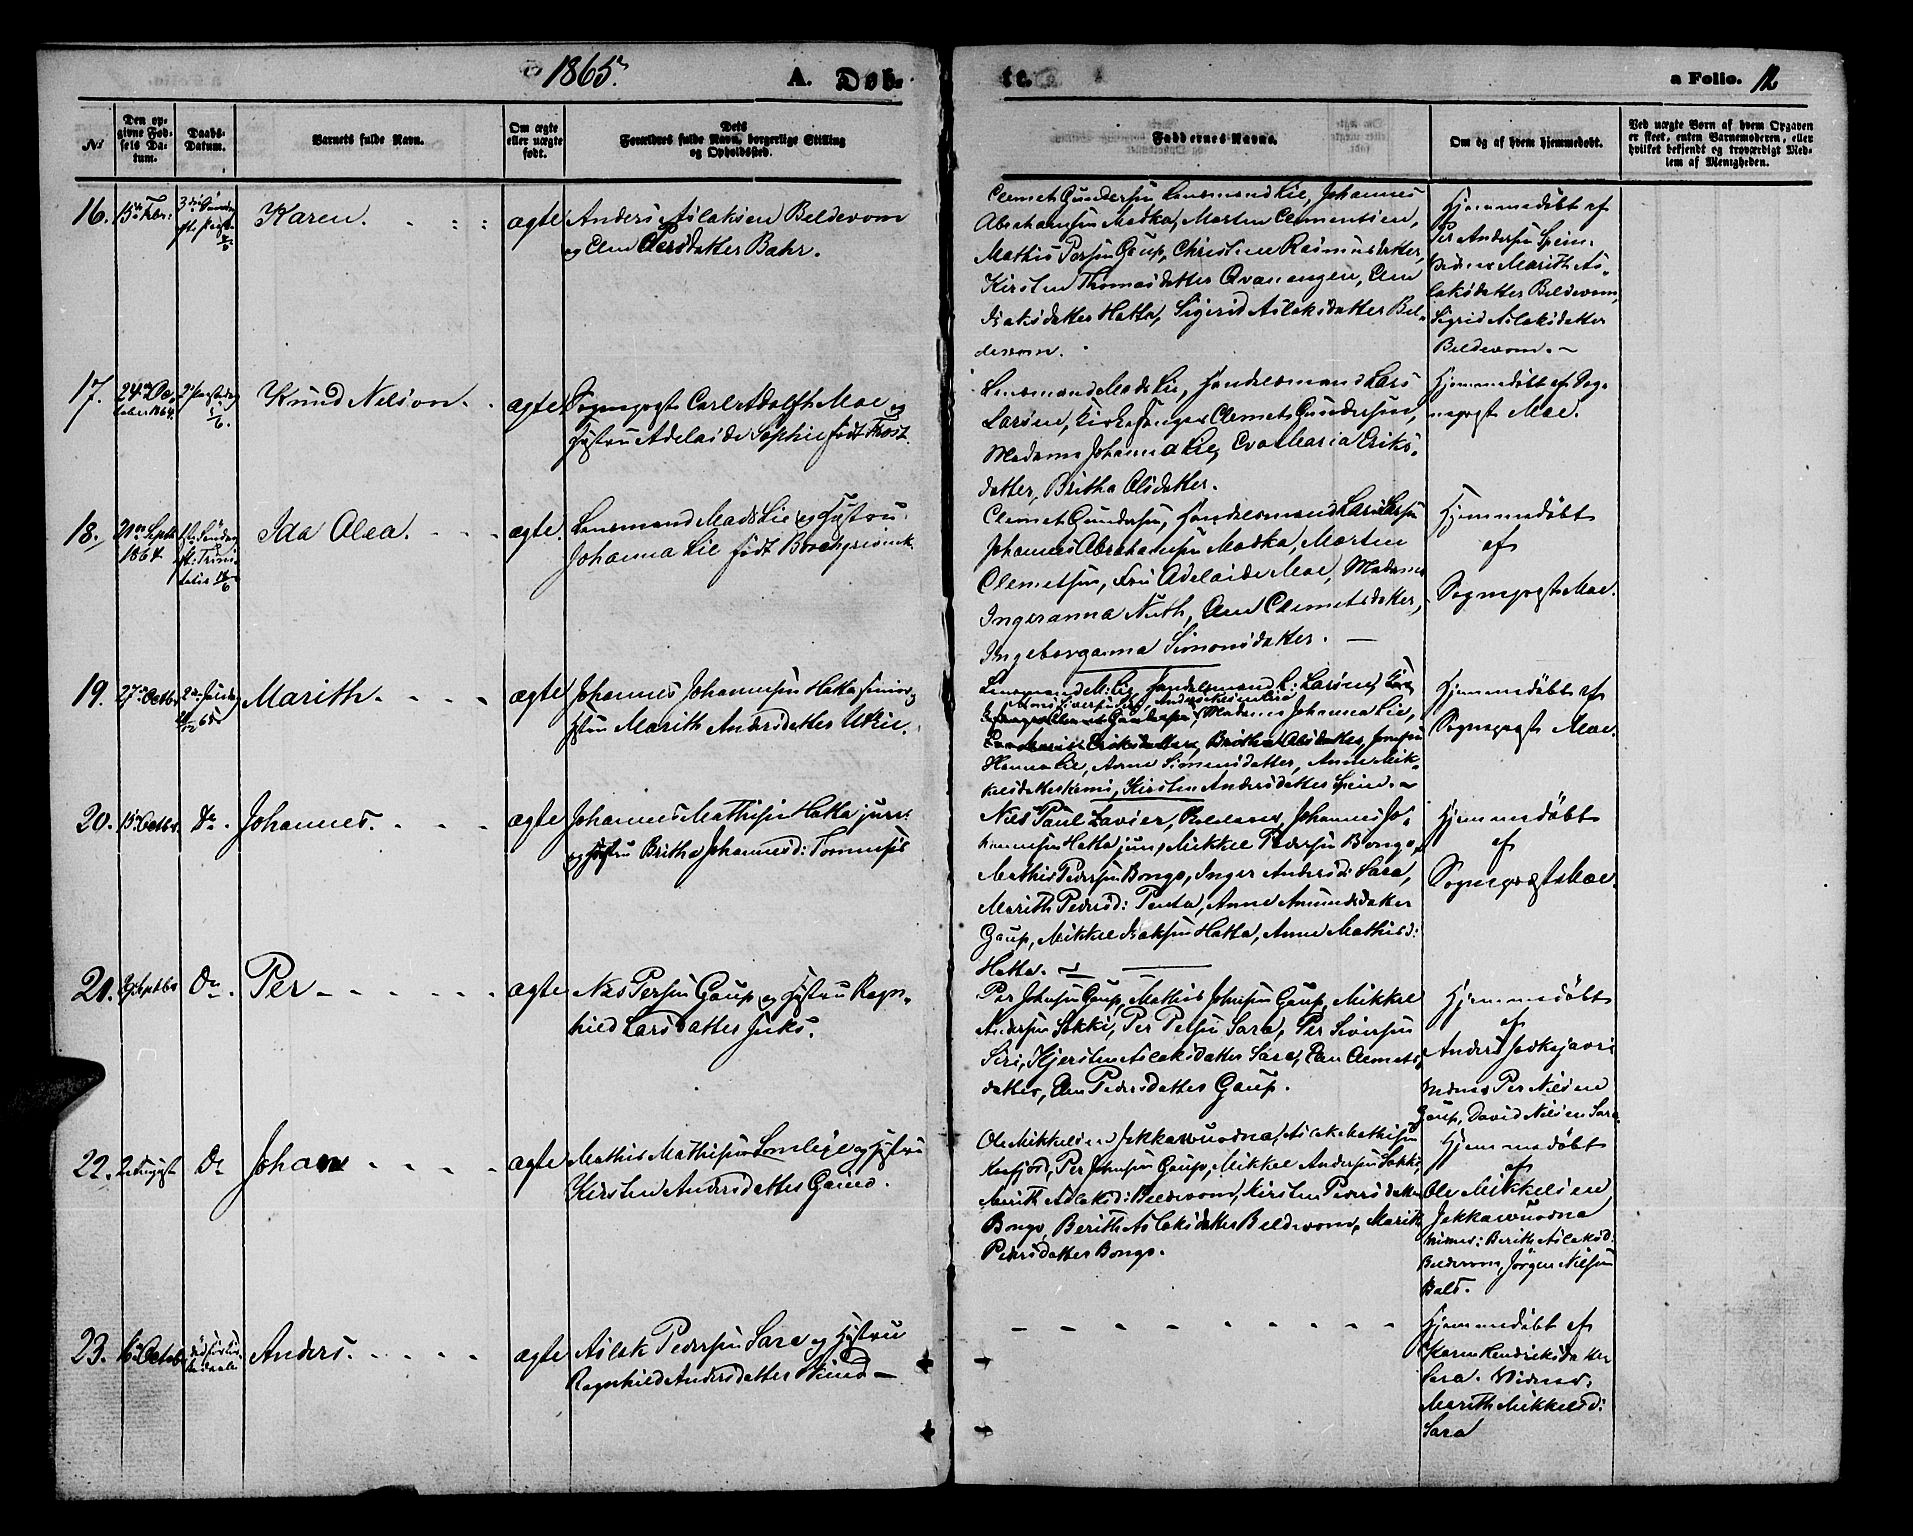 1865.
A. Døb-
te.
a Folio. 12
No
Den op-
givne Fød-
sels Da-
tum.
Daabs-
Datum.
Barnets fulde Navn.
Om ægte
eller uægte
født.
Dets
Forældres fulde Navn, borgerlige Stilling
og Opholdssted.
Faddernes Navne.
Om og af hvem hjemmedøbt.
Ved uægte Børn af hvem Opgaven
er skeet, enten Barnemoderen, eller
hvilket bekjendt og troværdigt Med-
lem af Menigheden.
16.
Karen.
ægte
Anders Aslaksen Beldevom
og Elen Persdatter Bahr.
Clemet Gundersen Lensmand Lie, Johannes
Abrahamsen Madka, Morten Clementsen,
Mathis Persen Gaup, Christine Rasmusdatter,
Kirsten Thomasdatter Qvanangen, Elen
Isaksdatter Hatta, Sigrid Aslaksdatter Bel-
devom.
Hjemmedøbt af
Per Andersen Spein.
Marith As-
laksdatter Beldevom,
Sigrid Aslaksdatter
Beldevom. -
17.
24de De-
cember 1864
Knud Nilson.
ægte
Sognepræst Carl Adolf Moe og
Hustru Adelaide Sophie født Frost.
Lensmand Mads Lie, Handelsmand Lars
Larsen, Kirkesanger Clemet Gundersen,
Madame Johanna Lie, Eva Maria Eriks-
datter, Britha Olsdatter.
Hjemmedøbt af Sog-
nepræst Moe.
18.
Septb
1864
Ida Olea.
ægte.
Lensmand Mads Lie og Hustru
Johanna Lie født Borchgrevink
Clemet Gundersen, Handelsmand Lars Larsen
Johannes Abrahamsen Madka, Morten
Clemetsen, Fru Adelaide Moe, Madame
Ingeranna Nuth, Elen Clemetsdatter,
Ingeborganna Simonsdatter. -
Hjemmedøbt
af
Sognepræst Moe.
19.
27de Octb
Marith.
ægte
Johannes Johannesen Hatta senior og
Hustru Marith Andersdatter Utsie.
Lensmand M: Lie, Handelsmand L: Larsen,
Clemet Gundersen, Madame Johanna Lie,
Eva Maria Eriksdatter, Britha Olsdatter, Jomfru
Hanna Lie, Anne Simonsdatter, Anne Mik-
kelsdatter, Kirsten Andersdatter Spein. -
Hjemmedøbt af
Sognepræst Moe.
20.
15de Octbr.
Do.
Johannes.
ægte
Johannes Mathisen Hatta jun:
og Hustru Britha Johannesd: Tommesis
Nils Paul Xavier, Johannes Jo-
hannesen Hatta jun, Mikkel Pedersen Bongo,
Mathis Pedersen Bongo, Inger Andersd: Sara,
Marith Pedersd: Penta, Anne Amundsdatter
Gaup, Mikkel Isaksen Hatta, Anne Mathisd:
Hatta. -
Hjemmedøbt
af
Sognepræst Moe.
21.
Do.
Per
ægte
Nils Persen Gaup og Hustru Ragn-
hild Larsdatter Juks.
Per Johnsen Gaup, Mathis Johnsen Gaup, Mikkel
Andersen Sokki, Per Persen Sara, Per Siversen
Siri, Kjersten Aslaksdatter Sara, Elen Clemets-
datter, Elen Pedersdatter Gaup.
Hjemmedøbt
af
Anders
Vidner Per Nilsen
Gaup, David Nilsen Sara
22.
2 August
Do
Johan
ægte
Mathis Mathisen Somleje og Hustru
Kirsten Andersdatter Gaino.
Ole Mikkelsen Jekkawuodna, Aslak Mathisen
Kaafjord, Per Johnsen Gaup, Mikkel Andersen Sokki,
Marith Aslaksd: Beldevom, Kirsten Pedersdatter
Bongo, Berith Aslaksdatter Beldevom, Marith
Pedersdatter Bongo.
Hjemmedøbt
af
Ole Mikkelsen
Jekkawuodna
Vidner: Berith Aslaksd:
Beldevom, Jørgen Nilsen
Bals.
23.
Anders.
ægte
Aslak Pedersen Sara og Hustru
Ragnhild Andersdatter
Hjemmedøbt af
Karen Hendriksdatter
Sara. Vidner:
Marith Mikkelsd:
Sara